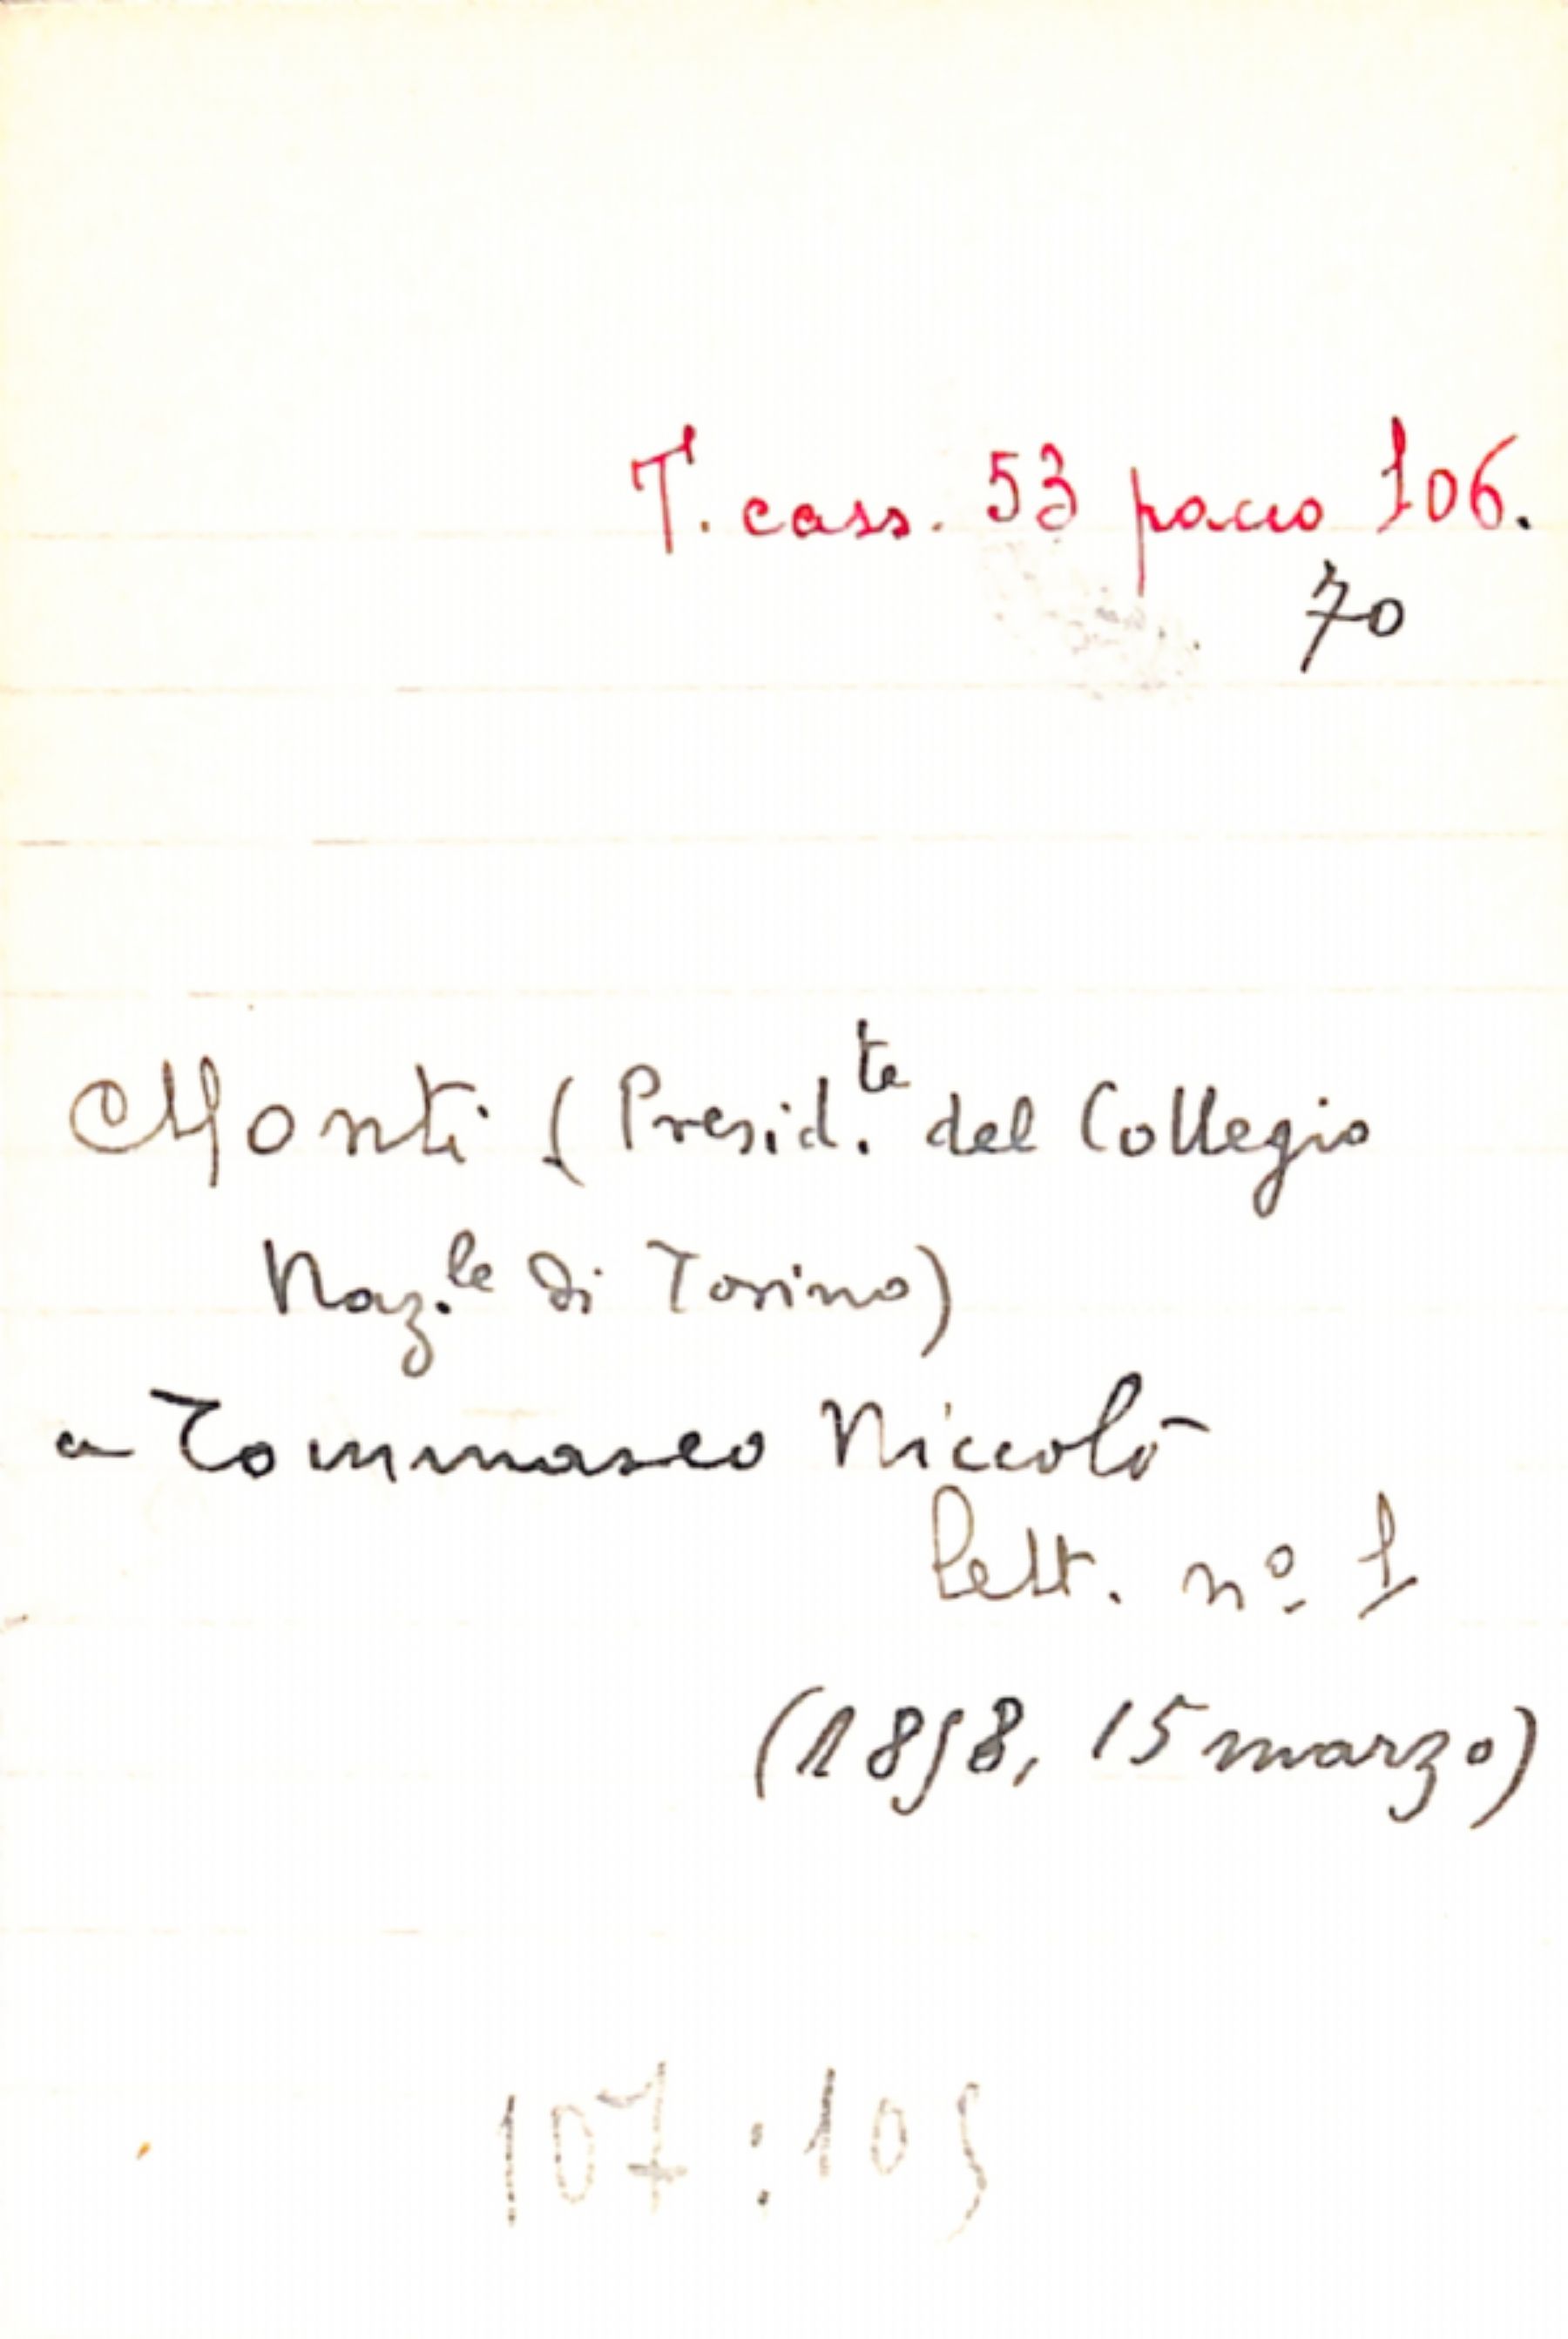 T. cass. 53 pacco 106.
70
Monti (Presid.te del Collegio
Naz.le di Torino)
a Tommaseo Niccolò
lett. nº 1
(1858, 15 marzo)
107:105